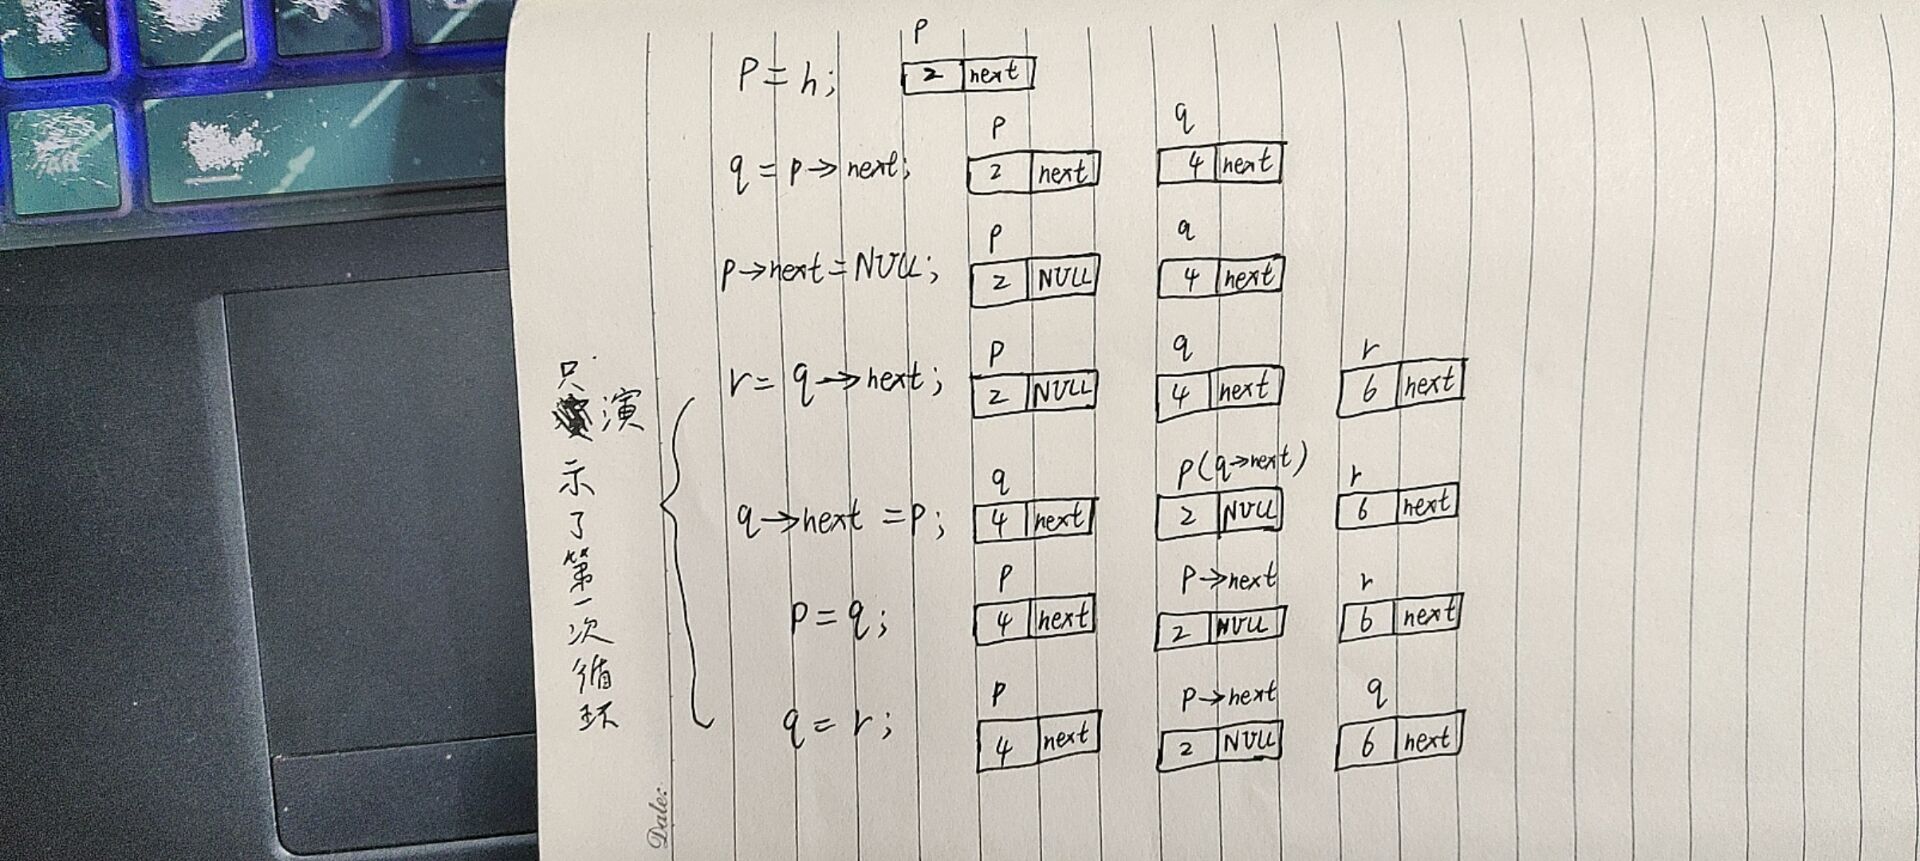 p
p = h; 2 next
p q
q = p→next; 2 next 4 next
p q
p→next = NULL; 2 NULL 4 next
p q r
r = q→next; 2 NULL 4 next 6 next
q p(q→next) r
q→next = p; 4 next 2 NULL 6 next
p p→next r
p = q; 4 next 2 NULL 6 next
p p→next q
q = r; 4 next 2 NULL 6 next
只演示了第一次循环
Date: